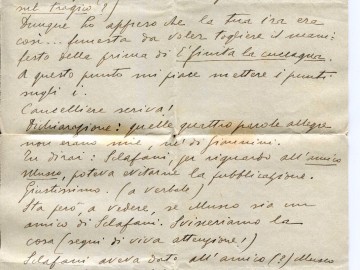 sul tragico?)
Dunque ho appreso che la tua ira era
così... funesta da voler togliere il mani-
festo della prima di "È finita la cuccagna".
A questo punto mi piace mettere i punti
sugli i.
Cancelliere scriva!
Dichiarazione: quelle quattro parole allegre
non erano mie, nè di Giannina.
Tu dirai: Sclafani, per riguardo all'amico
Musco, poteva evitarne la pubblicazione.
Giustissimo. (a verbale)
Sta però, a vedere, se Musco sia un
amico di Sclafani. Svisceriamo la
cosa (segni di viva attenzione!)
Sclafani aveva dato all'amico (?) Musco